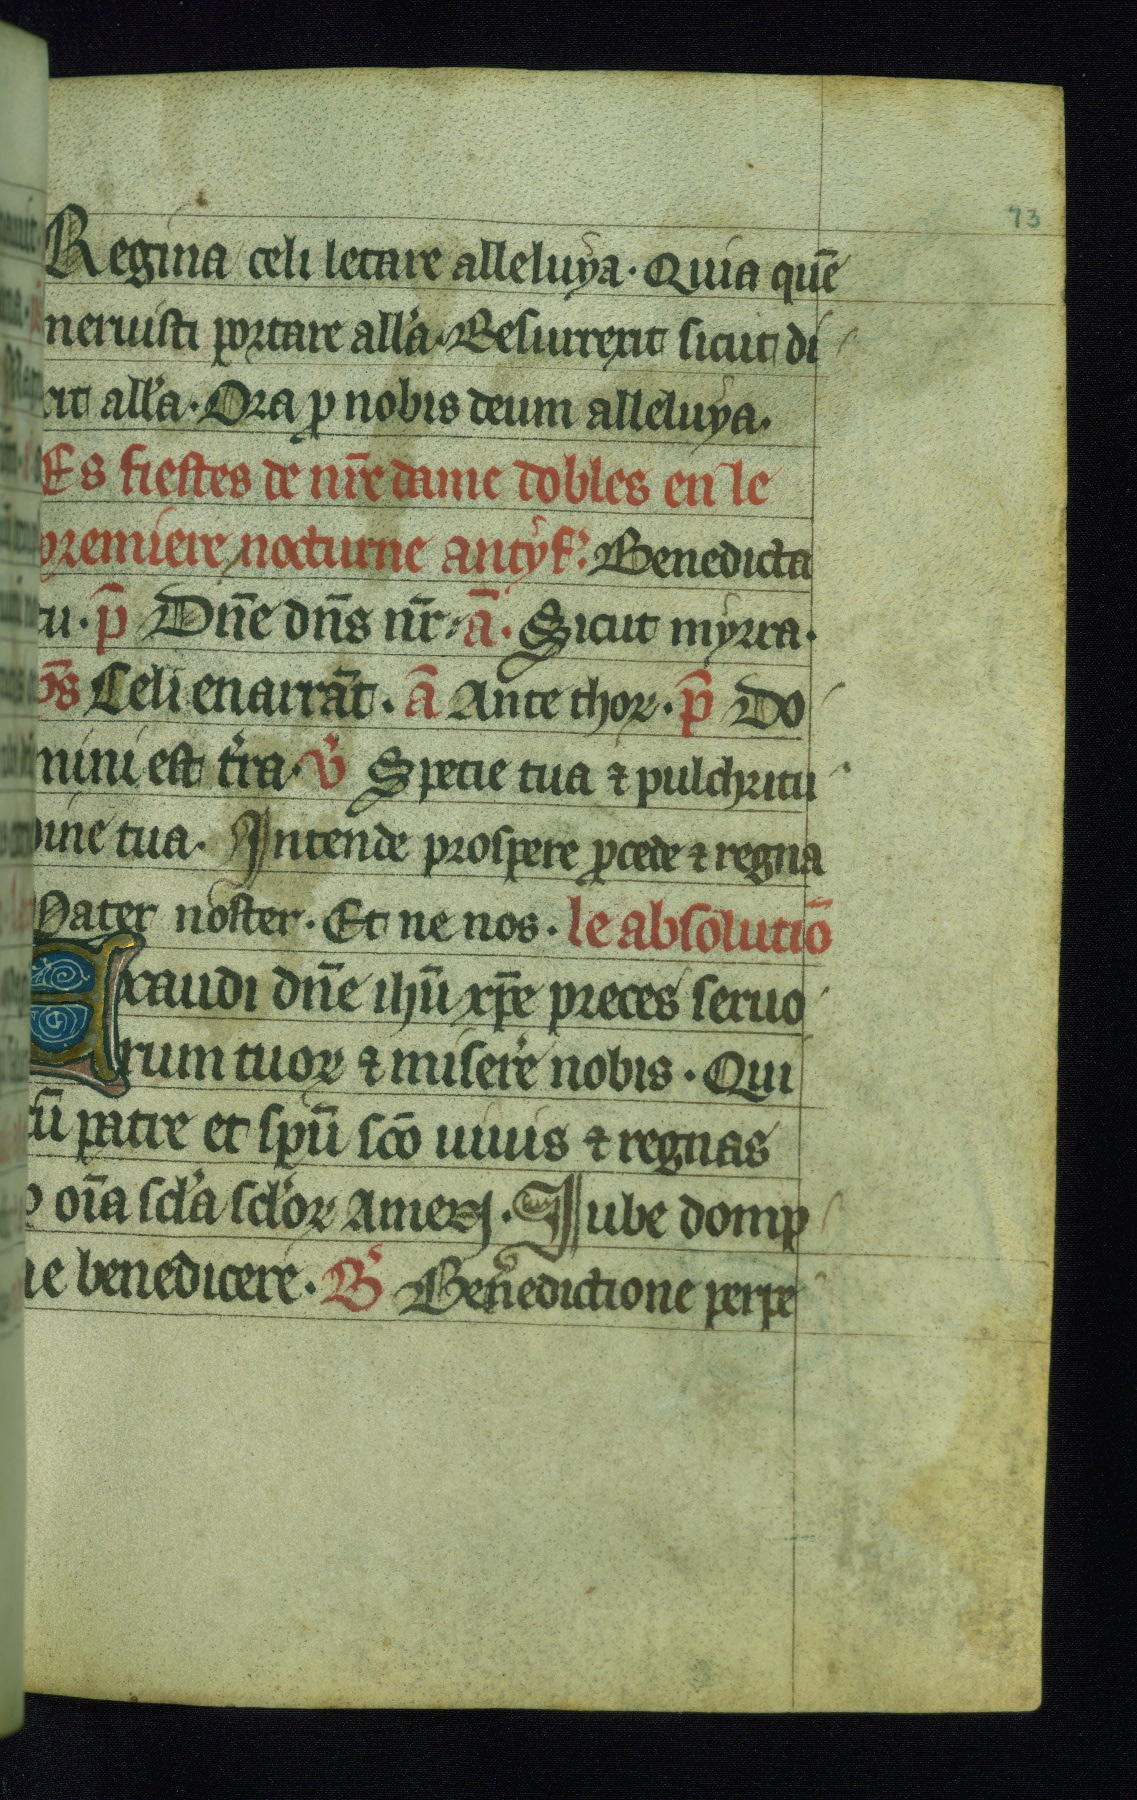 73
Regina celi letare alleluya. Quia quē
meruisti portare all'a. Resurrexit sicut di
xit all'a. Ora ꝑ nobis deum alleluya.
Es fiestes de nr̄e dame dobles en le
premiere nocturne antyf. Benedicta
tu. p̄ Dn̄e dn̄s nr̄. ā. Sicut myrra.
p̄s Celi enarrāt. ā Ante thoꝝ. p̄ Do
mini est t'ra. V' Specie tua ⁊ pulchritu
dine tua. Intende prospere ꝓcede ⁊ regna
Pater noster. Et ne nos. le absolutiō
Exaudi dn̄e ihū xp̄e preces seruo
rum tuoꝝ ⁊ miser'e nobis. Qui
cū patre et spū sc̄o uiuis ⁊ regnas
ꝑ oīa sc'la sc'loꝝ Amen. Iube domp
ne benedicere. R' Benedictione perpe